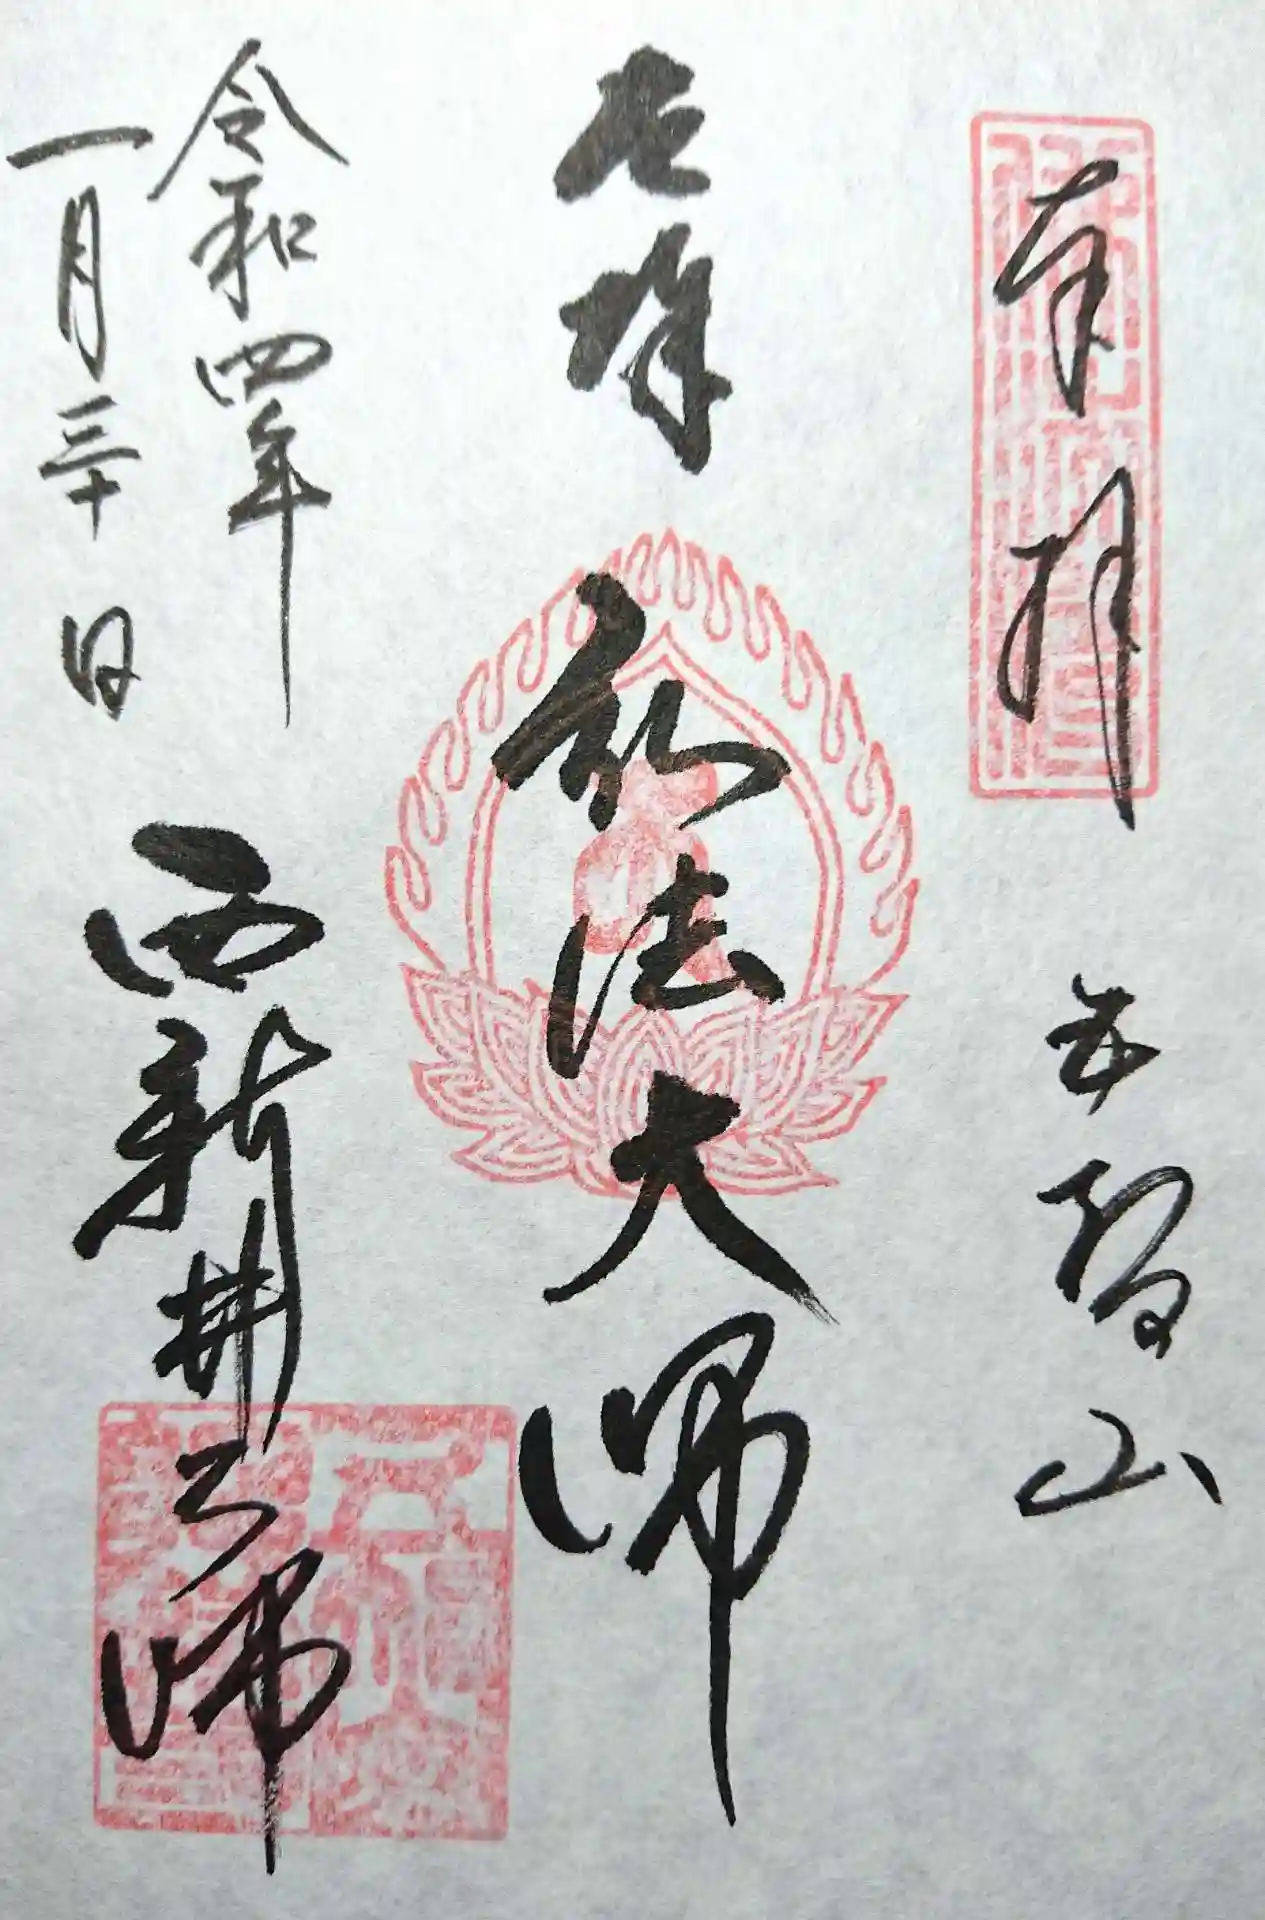 奉拝 五智山
厄除 弘法大師
令和四年
一月三十日
西新井大師